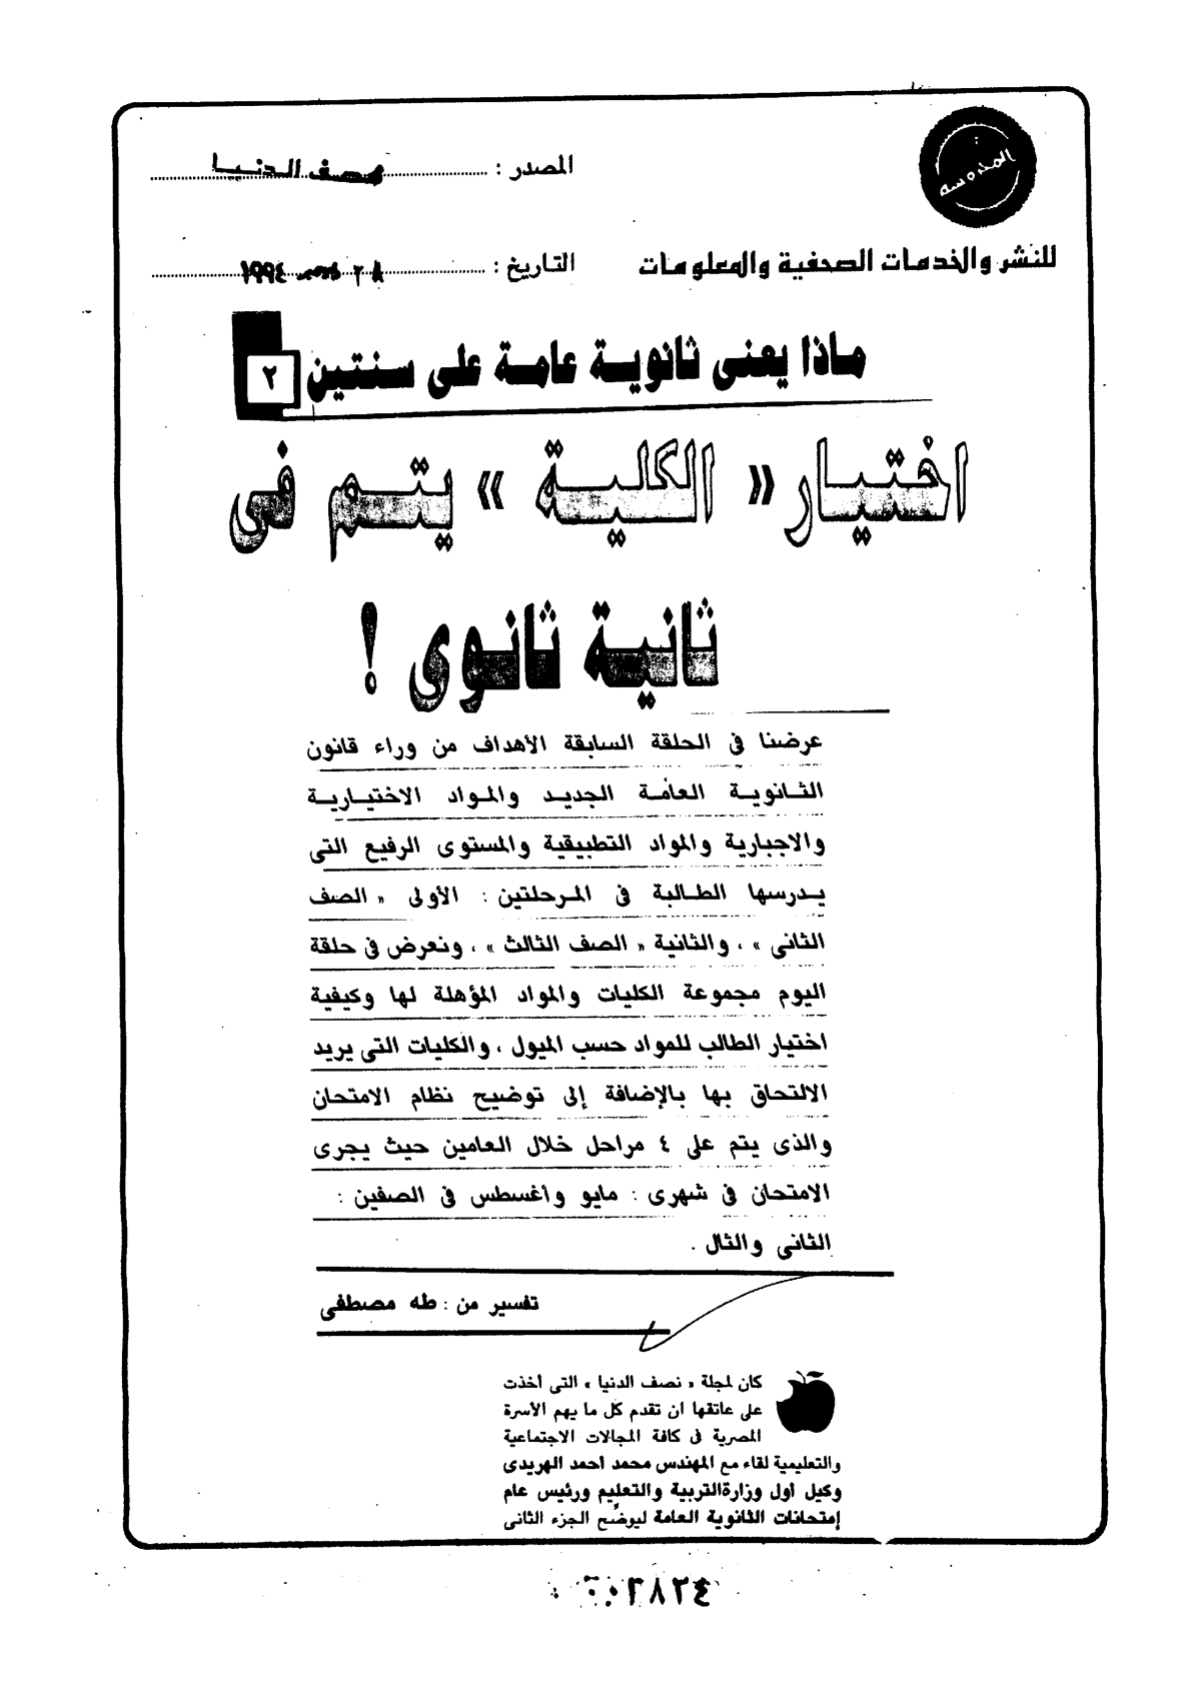 المحروسة
المصدر : نصف الدنيا
للنشر والخدمات الصحفية والمعلومات
التاريخ : ١٩٩٤
ماذا يعنى ثانوية عامة على سنتين ٢
اختيار « الكلية » يتم فى
ثانية ثانوى !
عرضنا فى الحلقة السابقة الأهداف من وراء قانون
الثانوية العامة الجديد والمواد الاختيارية
والاجبارية والمواد التطبيقية والمستوى الرفيع التى
يدرسها الطالبة فى المرحلتين : الأولى « الصف
الثانى » ، والثانية « الصف الثالث » ، ونعرض فى حلقة
اليوم مجموعة الكليات والمواد المؤهلة لها وكيفية
اختيار الطالب للمواد حسب الميول ، والكليات التى يريد
الالتحاق بها بالإضافة إلى توضيح نظام الامتحان
والذى يتم على ٤ مراحل خلال العامين حيث يجرى
الامتحان فى شهرى : مايو وأغسطس فى الصفين :
الثانى والثال .
تفسير من : طه مصطفى
كان لمجلة « نصف الدنيا » التى أخذت
على عاتقها أن تقدم كل ما يهم الأسرة
المصرية فى كافة المجالات الاجتماعية
والتعليمية لقاء مع المهندس محمد أحمد الهريدى
وكيل أول وزارة التربية والتعليم ورئيس عام
إمتحانات الثانوية العامة ليوضح الجزء الثانى